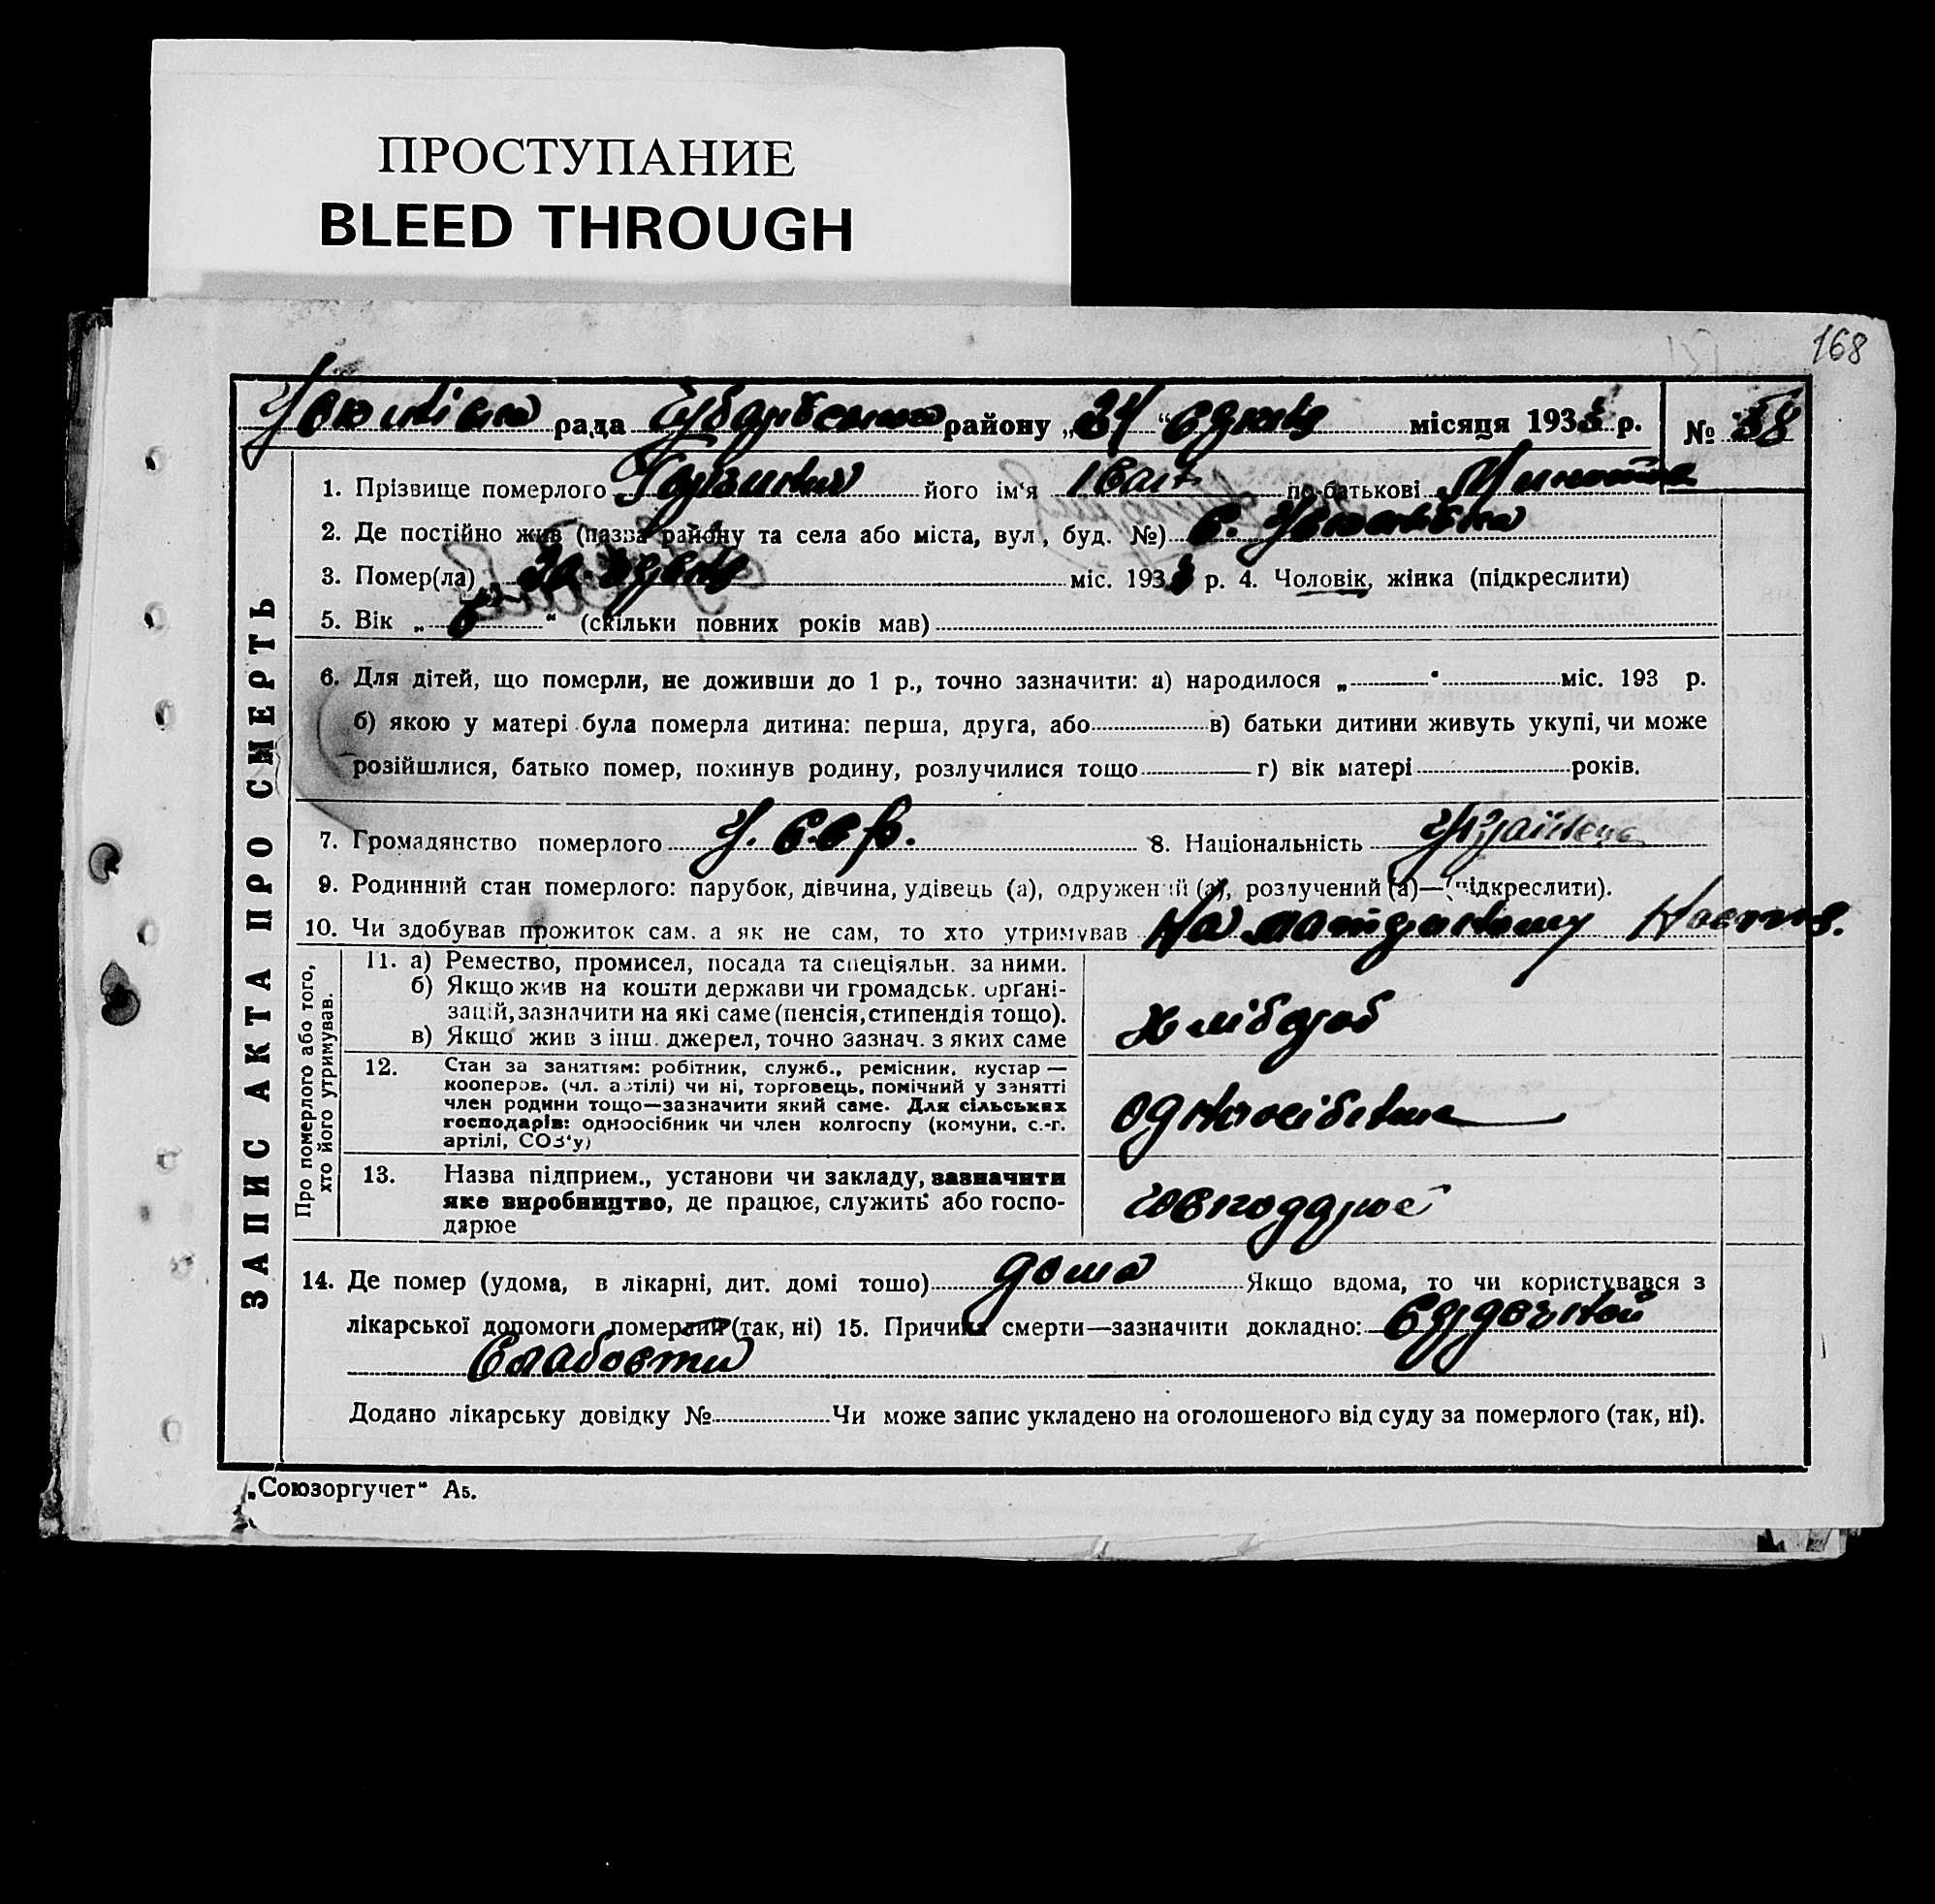 ПРОСТУПАНИЕ
BLEED THROUGH
168
рада району „24“ місяця 1933 р. № 38
1. Прізвище померлого його ім'я Іван по-батькові
2. Де постійно жив (назва району та села або міста, вул., буд. №) с.
3. Помер(ла) міс. 1933 р. 4. Чоловік, жінка (підкреслити)
5. Вік „ “ (скільки повних років мав)
6. Для дітей, що померли, не доживши до 1 р., точно зазначити: а) народилося „ “ міс. 193 р.
б) якою у матері була померла дитина: перша, друга, або в) батьки дитини живуть укупі, чи може
розійшлися, батько помер, покинув родину, розлучилися тощо г) вік матері років.
7. Громадянство померлого У.С.С.Р. 8. Національність Українець
9. Родинний стан померлого: парубок, дівчина, удівець (а), одружений (а), розлучений (а)—(підкреслити).
10. Чи здобував прожиток сам, а як не сам, то хто утримував На
ЗАПИС АКТА ПРО СМЕРТЬ
Про померлого або того,
хто його утримував.
11. а) Ремество, промисел, посада та спеціяльн. за ними.
б) Якщо жив на кошти держави чи громадськ. органі-
зацій, зазначити на які саме (пенсія, стипендія тощо).
в) Якщо жив з інш. джерел, точно зазнач. з яких саме
хлібороб
12. Стан за заняттям: робітник, служб., ремісник, кустар—
кооперов. (чл. артілі) чи ні, торговець, помічний у занятті
член родини тощо—зазначити який саме. Для сільських
господарів: одноосібник чи член колгоспу (комуни, с.-г.
артілі, СОЗ'у)
одноосібник
13. Назва підприєм., установи чи закладу, зазначити
яке виробництво, де працює, служить або госпо-
дарює
14. Де помер (удома, в лікарні, дит. домі тощо) дома Якщо вдома, то чи користувався з
лікарської допомоги померлий (так, ні) 15. Причина смерти—зазначити докладно: Сердечной
Слабости
Додано лікарську довідку № Чи може запис укладено на оголошеного від суду за померлого (так, ні).
„Союзоргучет“ А5.